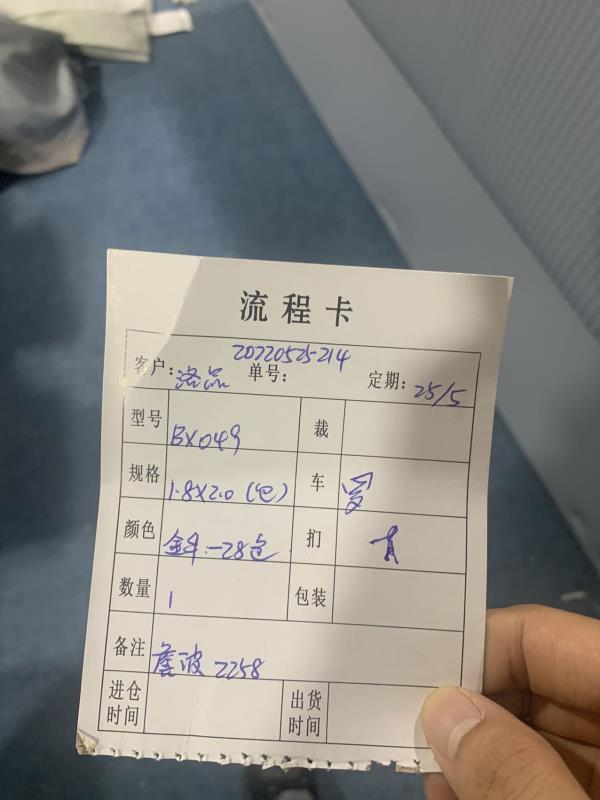 流程卡
20220525-214
客户: 洛品 单号: 定期: 25/5
型号 BX049 裁
规格 1.8X2.0 (包) 车 罗
颜色 -28色 扪
数量 1 包装
备注 波 2258
进仓时间 出货时间